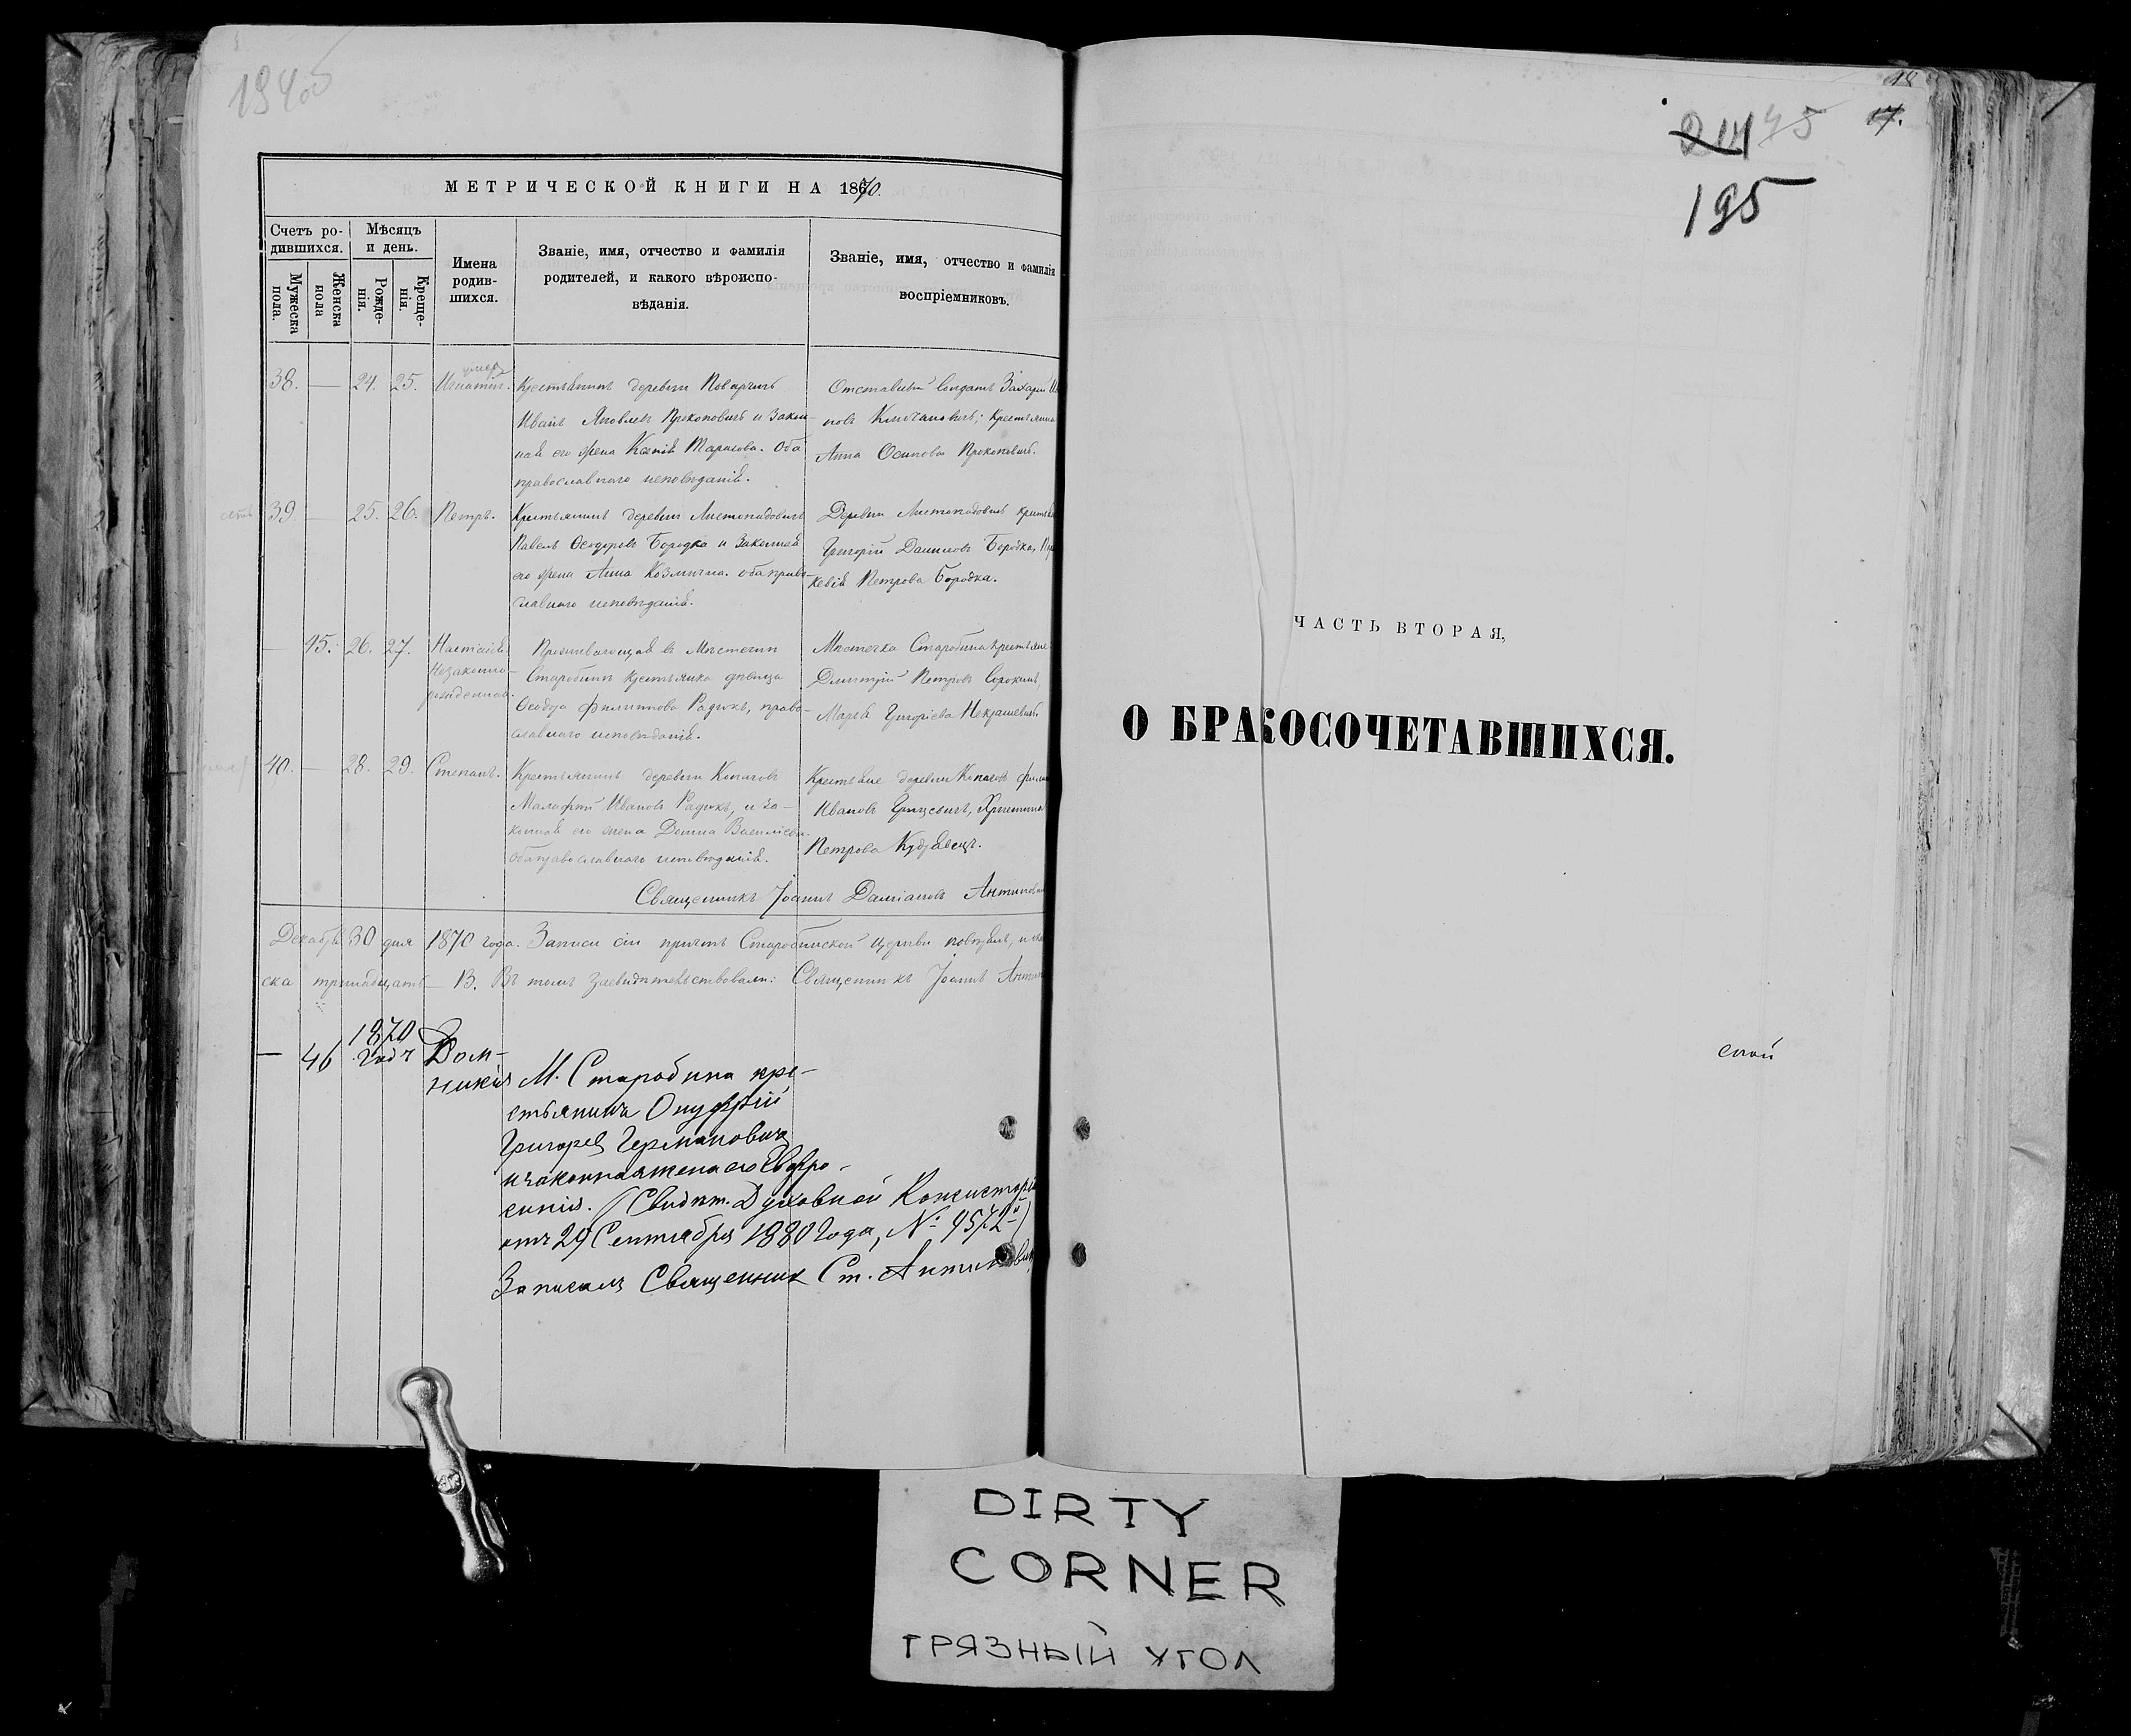 194об
МЕТРИЧЕСКОЙ КНИГИ НА 1870.
Счетъ ро-
дившихся.
Мужеска
пола.
Женска
пола
Мѣсяцъ
и день.
Рожде-
нія.
Креще-
нія.
Имена
родив-
шихся.
Званіе, имя, отчество и фамилія
родителей, и какого вѣроиспо-
вѣданія.
Званіе, имя, отчество и фамилія
воспріемниковъ.
умеръ
38. — 24. 25. Игнатій.
Крестьянинъ деревни
Иванъ Яковлевъ Прокоповичъ и закон-
ная его жена Ксенія Тарасова. Оба
православнаго исповѣданія.
Отставный солдатъ Захарій
новъ крестьянка
Анна Осипова Прокоповичъ.
39 — 25. 26. Петръ.
Крестьянинъ деревни Листопадовичъ
Павелъ Ѳеодоровъ Бородка и законная
его жена Анна Козмина. оба право-
славнаго исповѣданія.
Деревни Листопадовичъ
Григорій Даниловъ Бородка,
кевія Петрова Бородка.
— 45. 26. 27. Настасія
Незаконно-
рожденная.
Проживающая въ Мѣстечкѣ
Старобинѣ крестьянка дѣвица
Ѳеодора Филиппова Радюкъ, право-
славнаго исповѣданія.
Мѣстечка Старобина крестьяне
Дмитрій Петровъ Сорокинъ,
Марія Григоріева Некрашевичъ.
40. — 28. 29. Степанъ.
Крестьянинъ деревни Копачовъ
Малафей Ивановъ Радюкъ, и за-
конная его жена Домна Василіева.
Оба православнаго исповѣданія.
Крестьяне деревни Копачовъ
Ивановъ Грицевичъ, Христина
Петрова Кудравецъ.
Священникъ Іоаннъ Даміановъ
Декабря 30 дня 1870 года. Записи сіи причтъ Старобинской церкви повѣрялъ, и
ска тринадцать — 13. Въ томъ засвидѣтельствовали: Священникъ Іоаннъ
— 46 1870
годъ
Дом-
никія
М. Старобина кре-
стьянинъ Онуфрій
Григорев Германовичъ
и законная жена его Евфро-
синія. (Свидѣт. Духовной Консисторіи
отъ 29 Сентября 1880 года, № 9572-й)
Записалъ Священник Ст.
18
17.
244
45
195
ЧАСТЬ ВТОРАЯ,
О БРАКОСОЧЕТАВШИХСЯ.
ской
DIRTY
CORNER
ГРЯЗНЫЙ УГОЛ